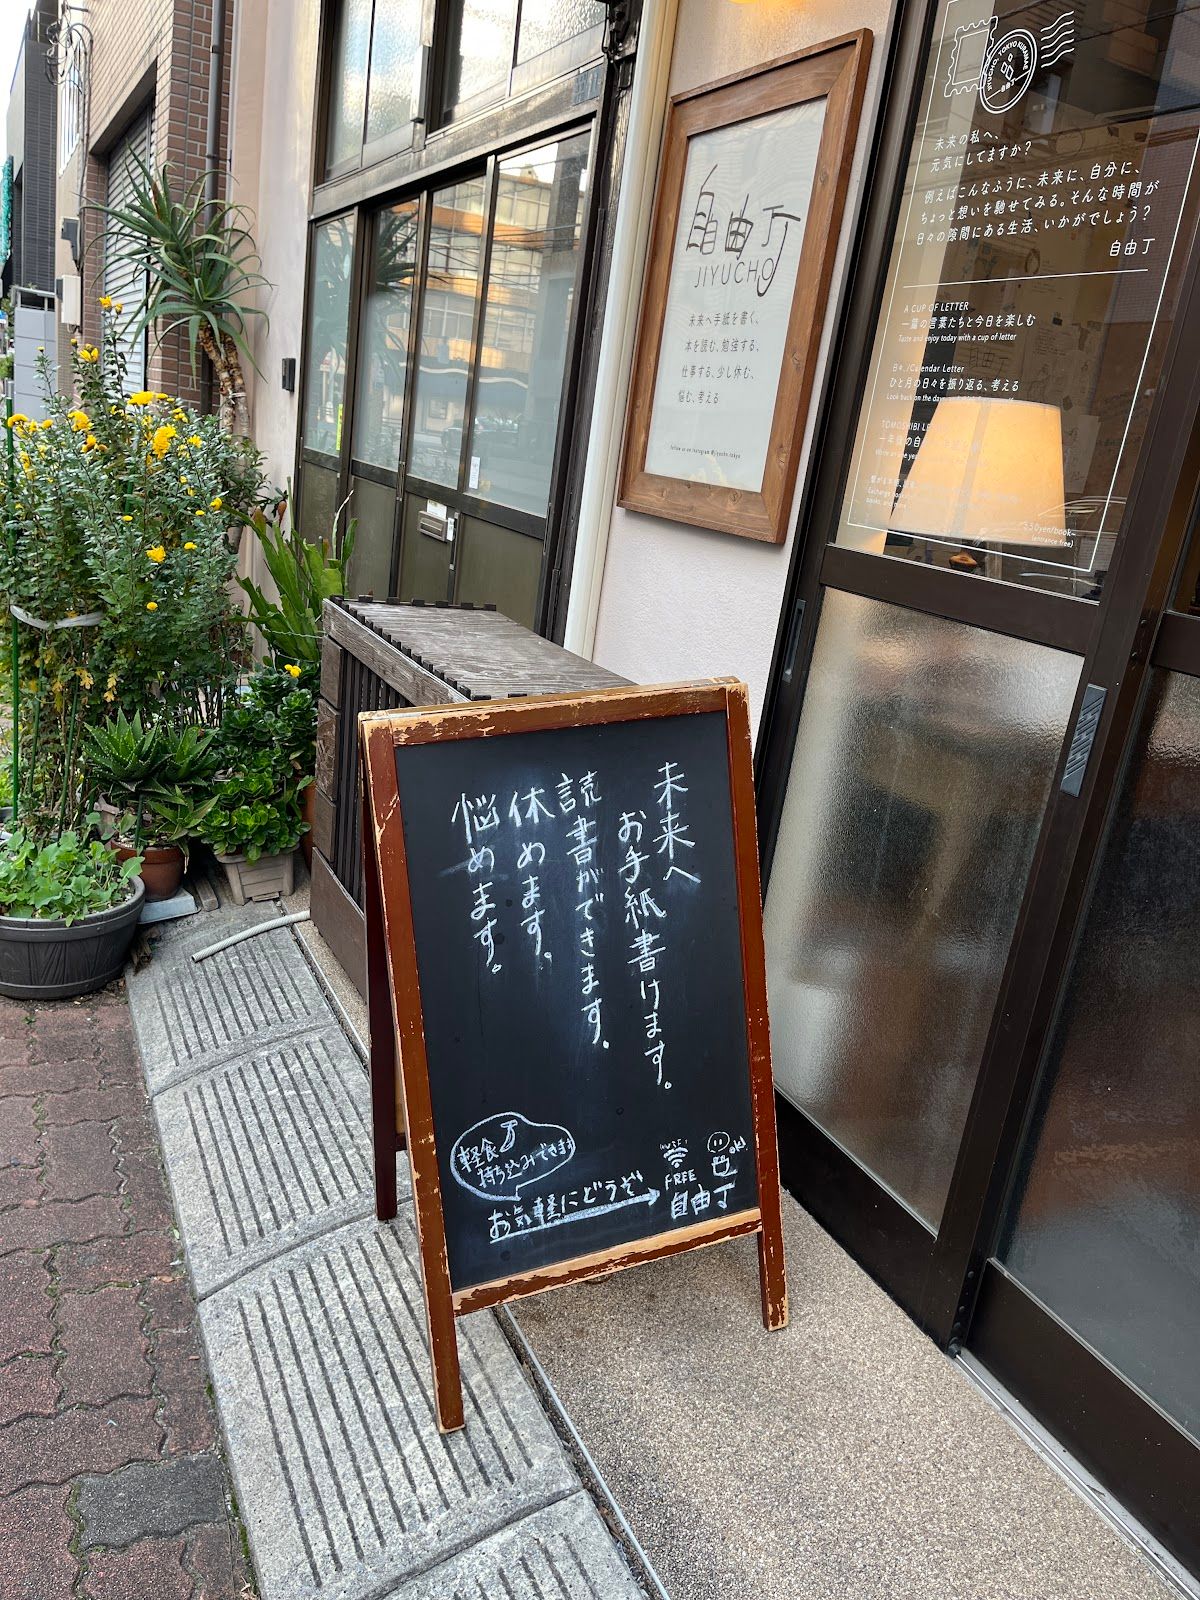 自由丁
JIYUCHO
未来へ手紙を書く、
本を読む、勉強する、
仕事する、少し休む、
悩む、考える
follow us on instagram @jiyucho.tokyo
未来の私へ、
元気にしてますか?
例えばこんなふうに、未来に、自分に、
ちょっと想いを馳せてみる。そんな時間が
日々の隙間にある生活、いかがでしょう?
自由丁
A CUP OF LETTER
一篇の言葉たちと今日を楽しむ
Taste and enjoy today with a cup of letter
日々、/Calendar Letter
ひと月の日々を振り返る、考える
Look back on the days
TOMOSHIBI LE
一年後の自
530yen/book~
(entrance free)
未来へ
お手紙書けます。
読書ができます。
休めます。
悩めます。
軽食
持ち込みできます
お気軽にどうぞ
WiFi
FREE
ok!
自由丁